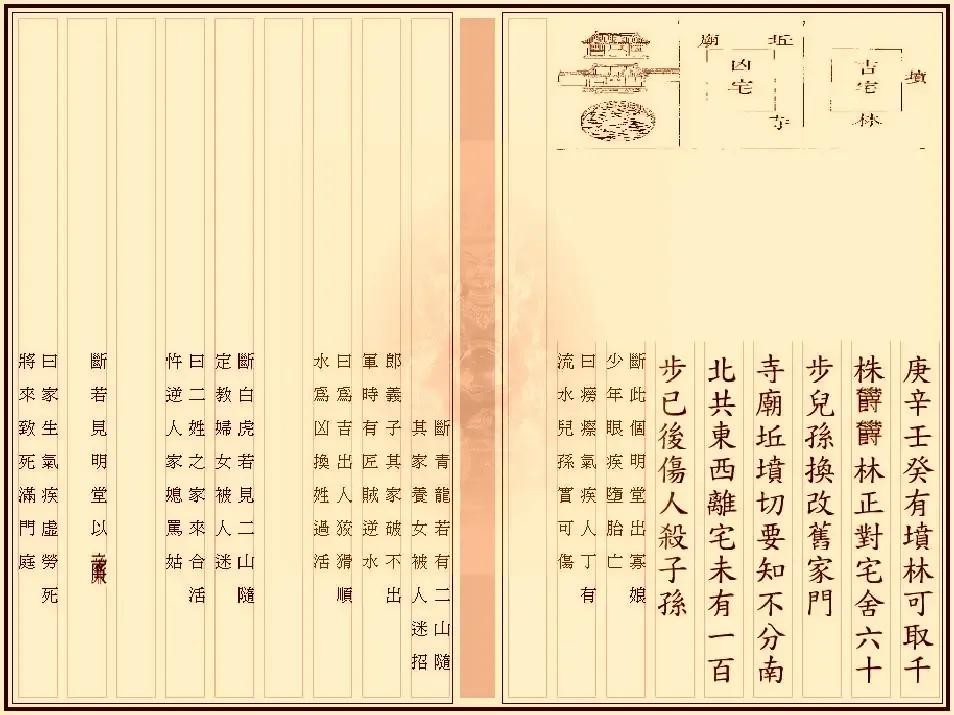 墳
吉宅
林
坵
廟
凶宅
庚辛壬癸有墳林可取千
株欝欝林正對宅舍六十
步兒孫換改舊家門
寺廟坵墳切要知不分南
北共東西離宅未有一百
步已後傷人殺子孫
斷此個明堂出寡娘
少年眼疾墮胎亡
曰癆瘵氣疾人丁有
流水兒孫實可傷
斷青龍若有二山隨
其家養女被人迷招
郎義子其家破不出
軍時有匠賊逆水
曰爲吉出人狡猾順
水爲凶換姓過活
斷白虎若見二山隨
定教婦女被人迷
曰二姓之家來合活
忤逆人家媳罵姑
斷若見明堂以
曰家生氣疾虛勞死
將來致死滿門庭